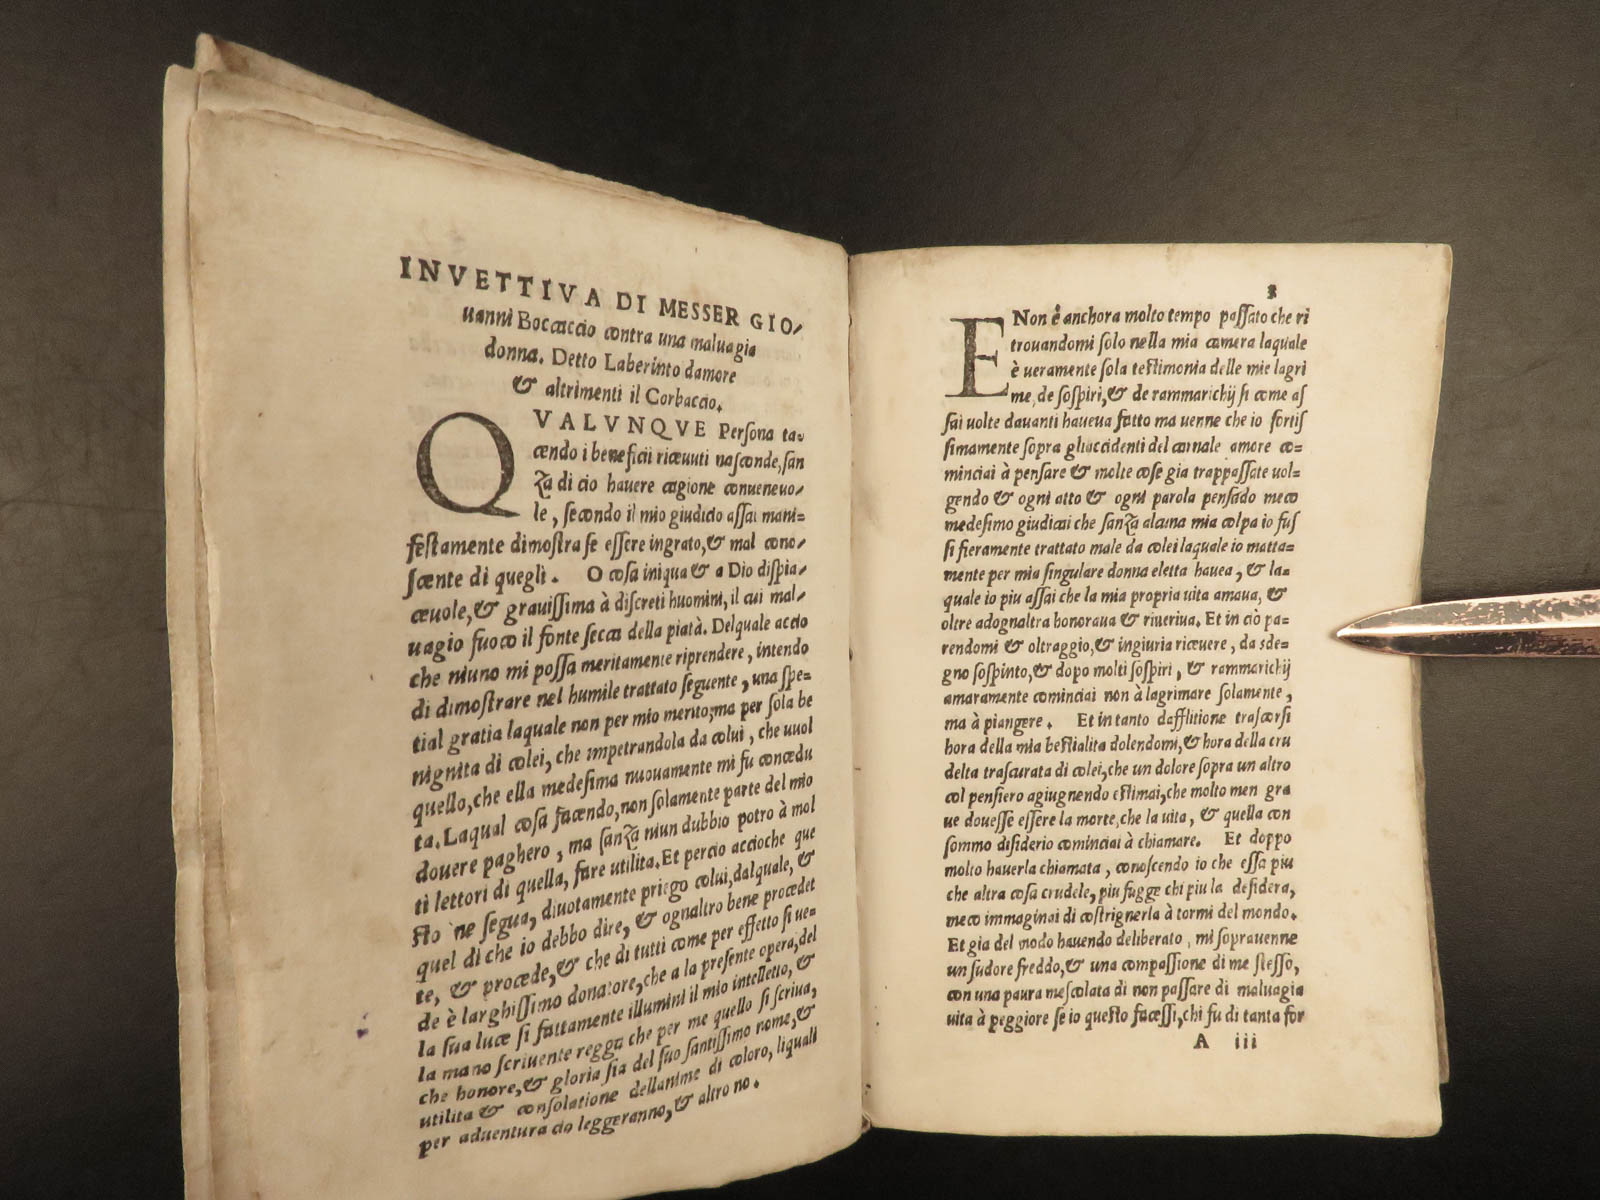 INVETTIVA DI MESSER GIO/
uanni Boccaccio contra una maluagia
donna. Detto Laberinto damore
& altrimenti il Corbaccio.
QVALVNQVE Persona ta-
cendo i beneficii riceuuti nasconde, san
za di cio hauere cagione conueneuo/
le, secondo il mio giudicio assai mani=
festamente dimostra se essere ingrato, & mal cono/
scente di quegli. O cosa iniqua & a Dio dispia/
ceuole, & grauissima à discreti huomini, il cui mal/
uagio fuoco il fonte secca della piatà. Delquale accio
che niuno mi possa meritamente riprendere, intendo
di dimostrare nel humile trattato seguente, una spe=
tial gratia laquale non per mio merito; ma per sola be
nignita di colei, che impetrandola da colui, che uuol
quello, che ella medesima nuouamente mi fu concedu
ta. Laqual cosa facendo, non solamente parte del mio
douere paghero, ma sanza niun dubbio potro à mol
ti lettori di quella, fare utilita. Et percio accioche que
sto ne segua, diuotamente priego colui, dalquale, &
quel di che io debbo dire, & ognaltro bene procedet
te, & procede, & che di tutti come per effetto si ue=
de è larghissimo donatore, che a la presente opera, del
la sua luce si fattamente illumini il mio intelletto, &
la mano scriuente regga che per me quello si scriua,
che honore, & gloria sia del suo santissimo nome, &
utilita & consolatione dellanime di coloro, liquali
per aduentura cio leggeranno, & altro no.
3
ENon è anchora molto tempo passato che ri
trouandomi solo nella mia camera laquale
è ueramente sola testimonia delle mie lagri
me, de sospiri, & de rammarichij si come as
sai uolte dauanti haueua fatto ma uenne che io fortis
simamente sopra gliaccidenti del carnale amore co=
minciai à pensare & molte cose gia trappassate uol=
gendo & ogni atto & ogni parola pensado meco
medesimo giudicai che sanza alcuna mia colpa io fus
si fieramente trattato male da colei laquale io matta=
mente per mia singulare donna eletta hauea, & la=
quale io piu assai che la mia propria uita amaua, &
oltre adognaltra honoraua & riueriua. Et in ciò pa=
rendomi & oltraggio, & ingiuria riceuere, da sde=
gno sospinto, & dopo molti sospiri, & rammarichij
amaramente cominciai non à lagrimare solamente,
ma à piangere. Et in tanto dafflitione trascorsi
hora della mia bestialita dolendomi, & hora della cru
delta trascurata di colei, che un dolore sopra un altro
col pensiero agiugnendo estimai, che molto men gra
ue douesse essere la morte, che la uita, & quella con
sommo disiderio cominciai à chiamare. Et doppo
molto hauerla chiamata, conoscendo io che essa piu
che altra cosa crudele, piu fugge chi piu la desidera,
meco immaginai di costrignerla à tormi del mondo.
Et gia del modo hauendo deliberato, mi soprauenne
un sudore freddo, & una compassione di me stesso,
con una paura mescolata di non passare di maluagia
uita à peggiore se io questo facessi, chi fu di tanta for
A iii